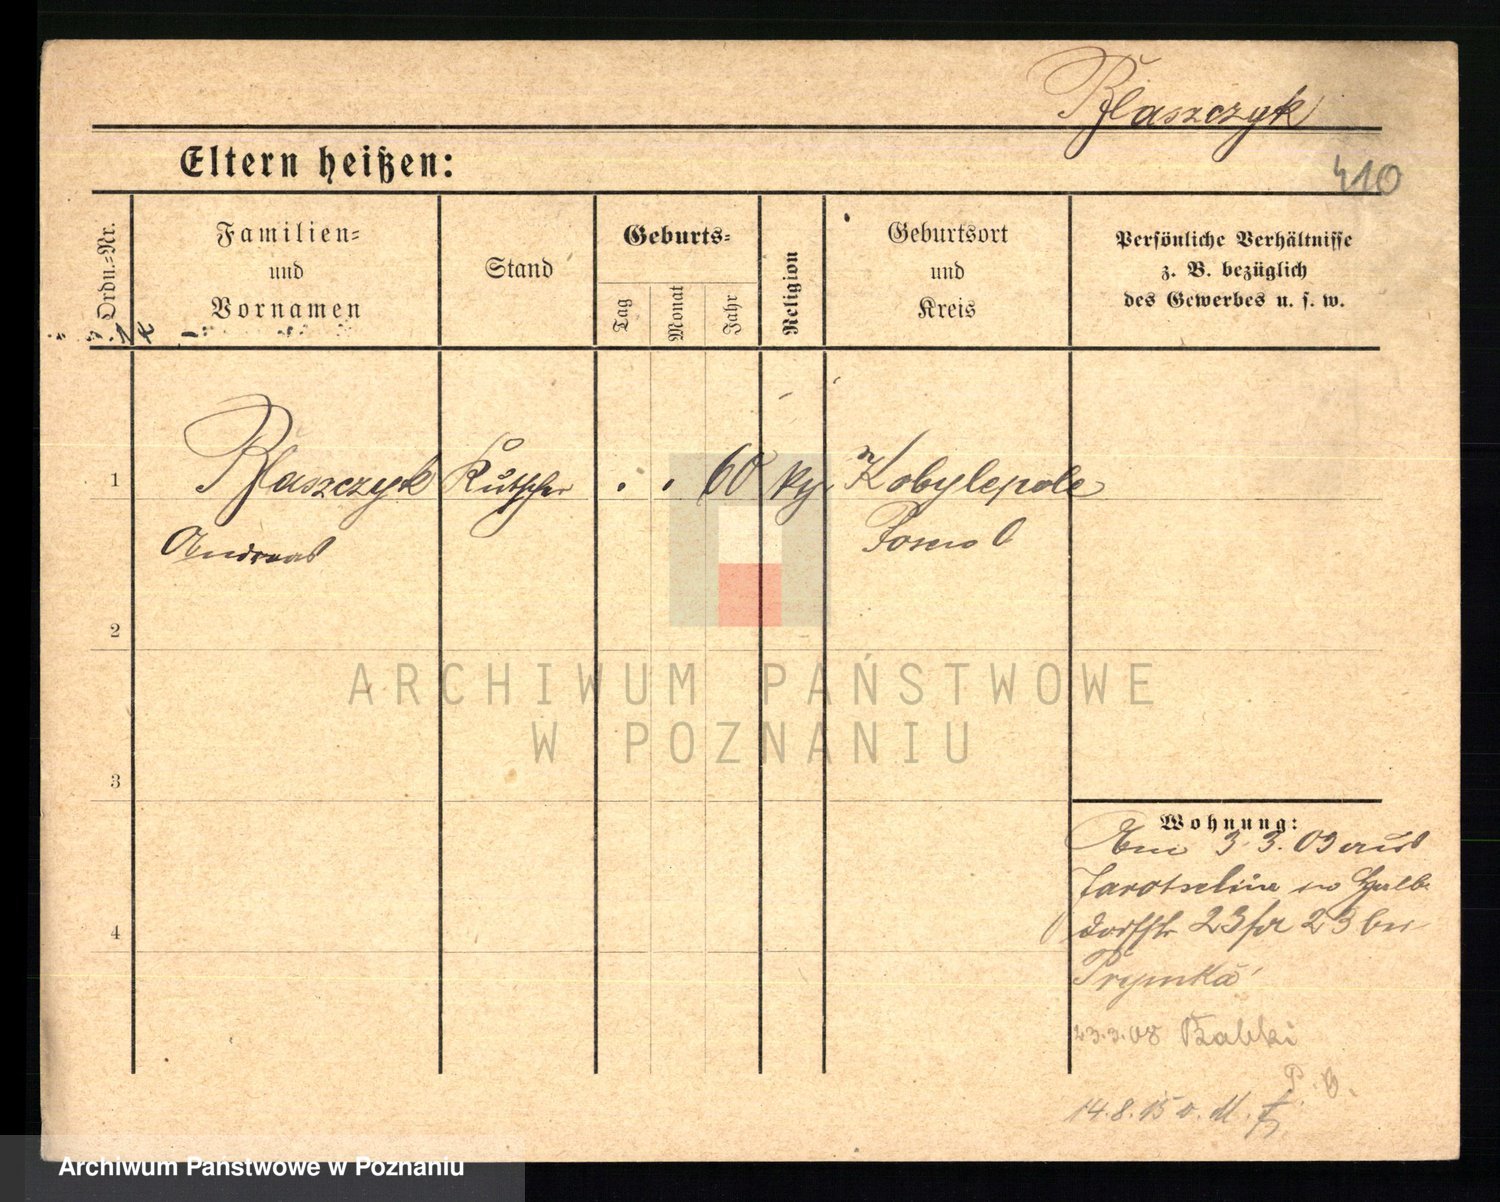 Błaszczyk
Eltern heißen:
410
Ordn.-Nr.
Familien-
und
Vornamen
Stand
Geburts-
Tag
Monat
Jahr
Religion
Geburtsort
und
Kreis
Persönliche Verhältnisse
z. B. bezüglich
des Gewerbes u. s. w.
1
Błaszczyk
Kutscher
60
Kobylepole
Andreas
Posen O
2
ARCHIWUM PAŃSTWOWE
W POZNANIU
3
Wohnung:
3. 3. 09 aus
Jarotschin
4
23 23 bei
Prymka
23.3.08 Babki
P. O.
14.8.15 v. M.
Archiwum Państwowe w Poznaniu